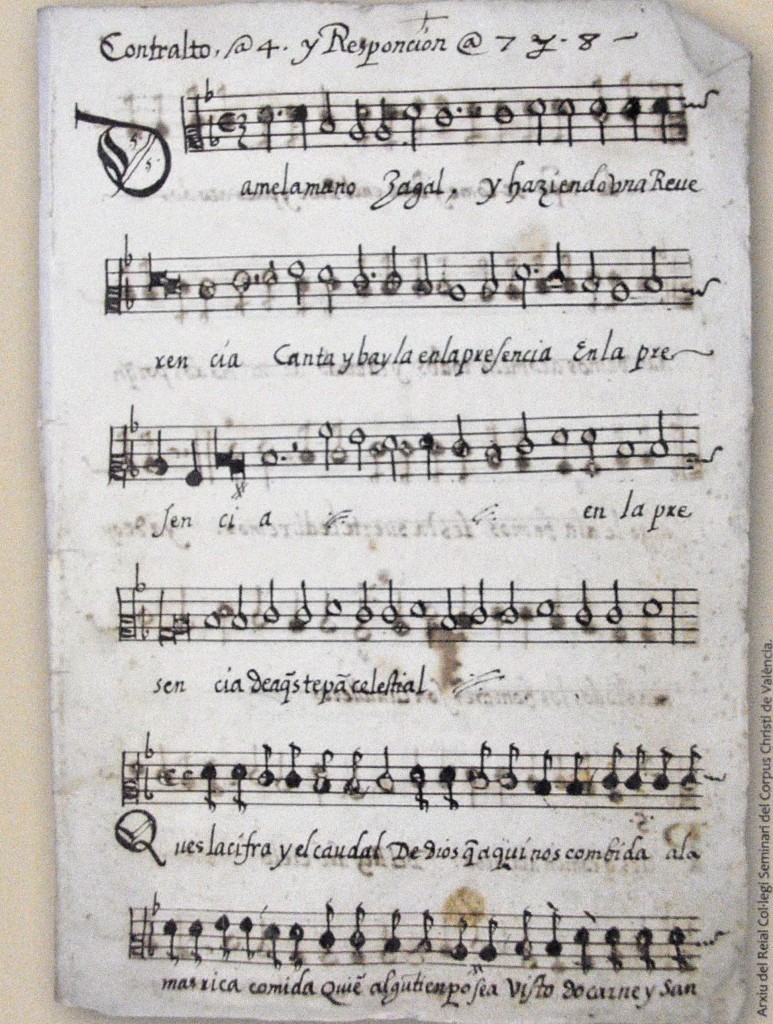 Contralto, @ 4. y Responcion @ 7 y. 8
Damelamano Zagal, y haziendo vna Reue
ren cia Canta y bayla enlapresencia Enla pre
sen ci a en la pre
sen cia deaq̃stepã celestial
Ques lacifra y el caudal De dios q̃aqui nos combida ala
mas rica comida Quiẽ algũ tienpo sea Visto do carne y San
Arxiu del Reial Col·legi Seminari del Corpus Christi de València.